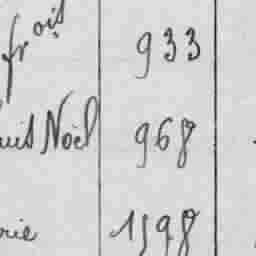 frois 933
uis Noël 968
rie 1598